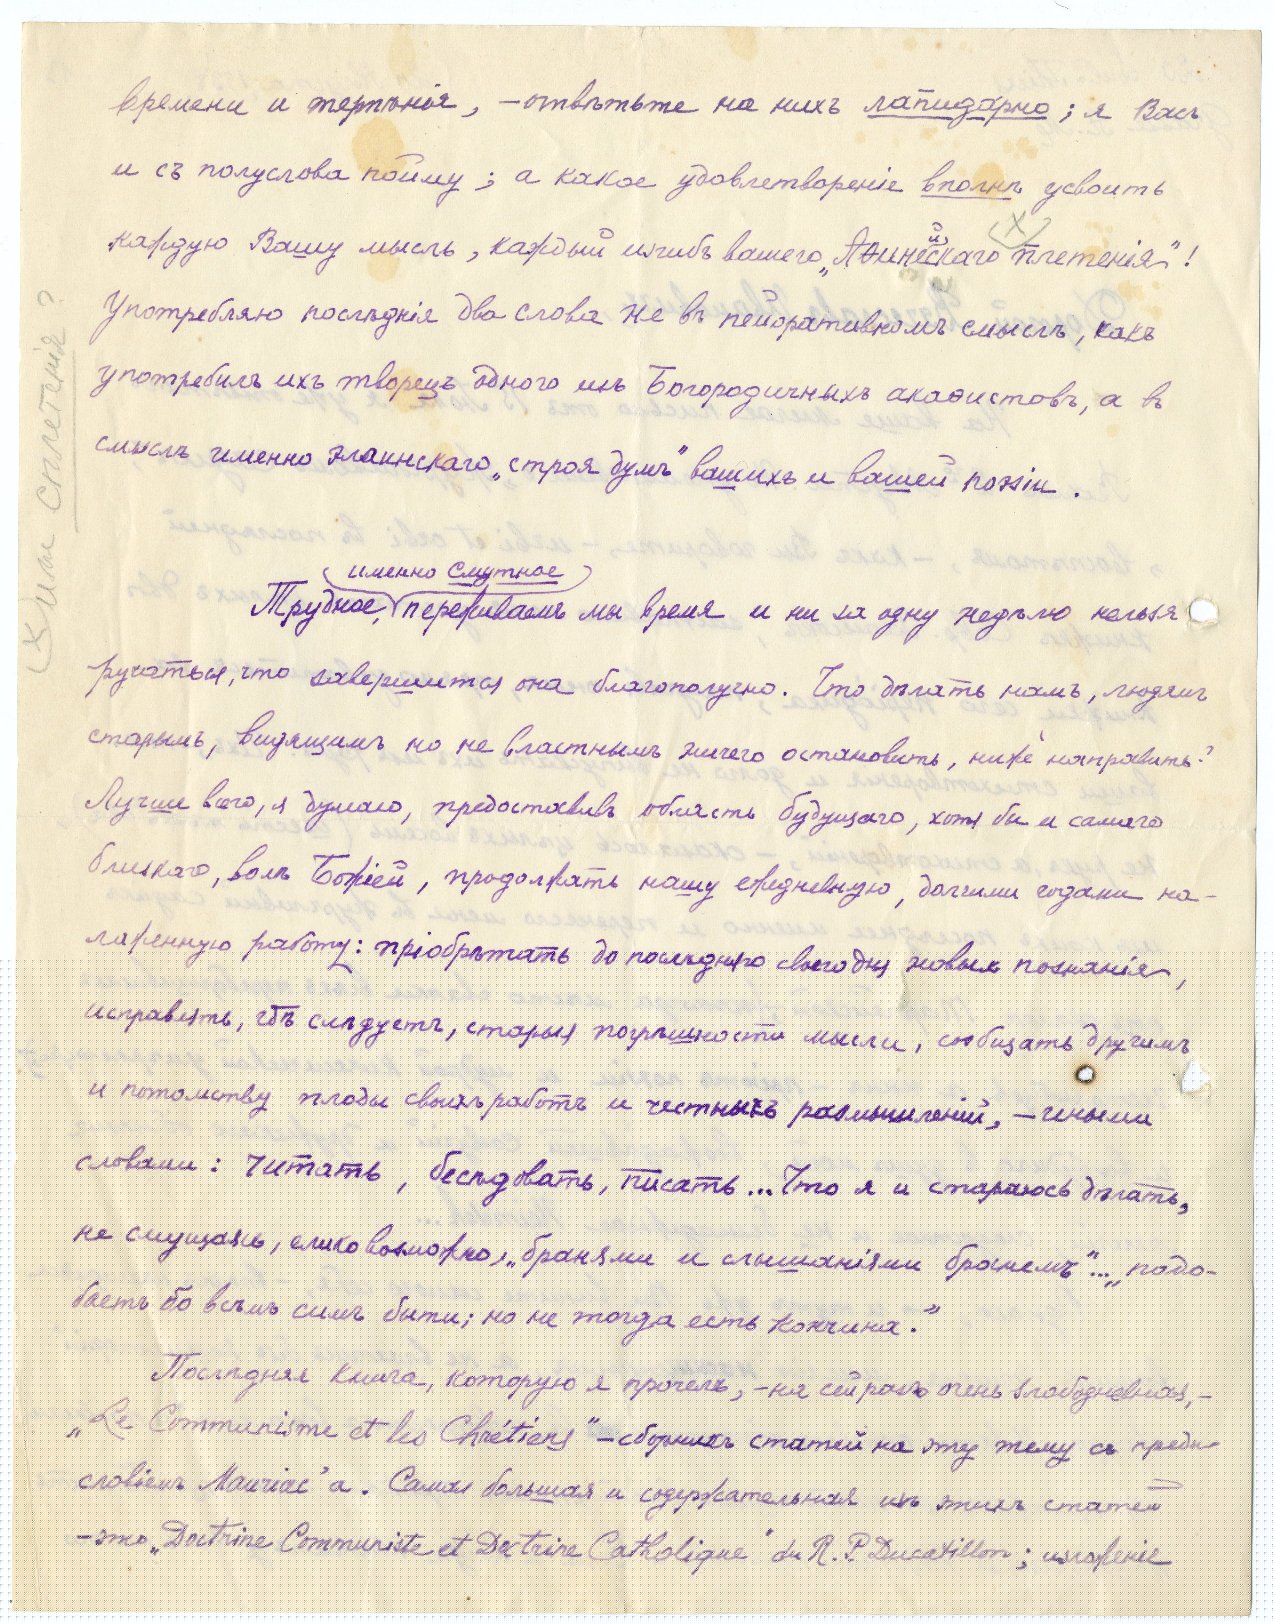 времени и терпѣнія, – отвѣтьте на нихъ лапидарно; я Васъ
и съ полуслова пойму; а какое удовлетвореніе вполнѣ усвоить
каждую Вашу мысль, каждый изгибъ вашего „Аѳинейскаго плетенія“!
(х)
Употребляю послѣднія два слова не въ пейоративномъ смыслѣ, какъ
употребилъ ихъ творецъ одного изъ Богородичныхъ акаѳистовъ, а въ
смыслѣ именно эллинскаго „строя думъ“ вашихъ и вашей поэзіи.
(х или сплетенія?
именно смутное
Трудное, переживаемъ мы время и ни за одну недѣлю нельзя
ручаться, что завершится она благополучно. Что дѣлать намъ, людямъ
старымъ, видящимъ но не властнымъ ничего остановить, ниже направить?
Лучше всего, я думаю, предоставивъ область будущаго, хотя бы и самаго
близкаго, волѣ Божіей, продолжать нашу ежедневную, долгими годами на-
лаженную работу: пріобрѣтать до послѣдняго своего дня новыя познанія,
исправлять, гдѣ слѣдуетъ, старыя погрѣшности мысли, сообщать другимъ
и потомству плоды своихъ работъ и честныхъ размышленій, – иными
словами: читать, бесѣдовать, писать... Что я и стараюсь дѣлать,
не смущаясь, елико возможно, „бранями и слышаніями бранемъ“... „подо-
баетъ бо всѣмъ симъ быти; но не тогда есть кончина.“
Послѣдняя книга, которую я прочелъ, – на сей разъ очень злободневная, –
„Le Communisme et les Chrétiens“ – сборникъ статей на эту тему съ преди-
словіемъ Mauriac'а. Самая большая и содержательная изъ этихъ статей
– это „Doctrine Communiste et Doctrine Catholique“ du R. P. Ducatillon; изложеніе